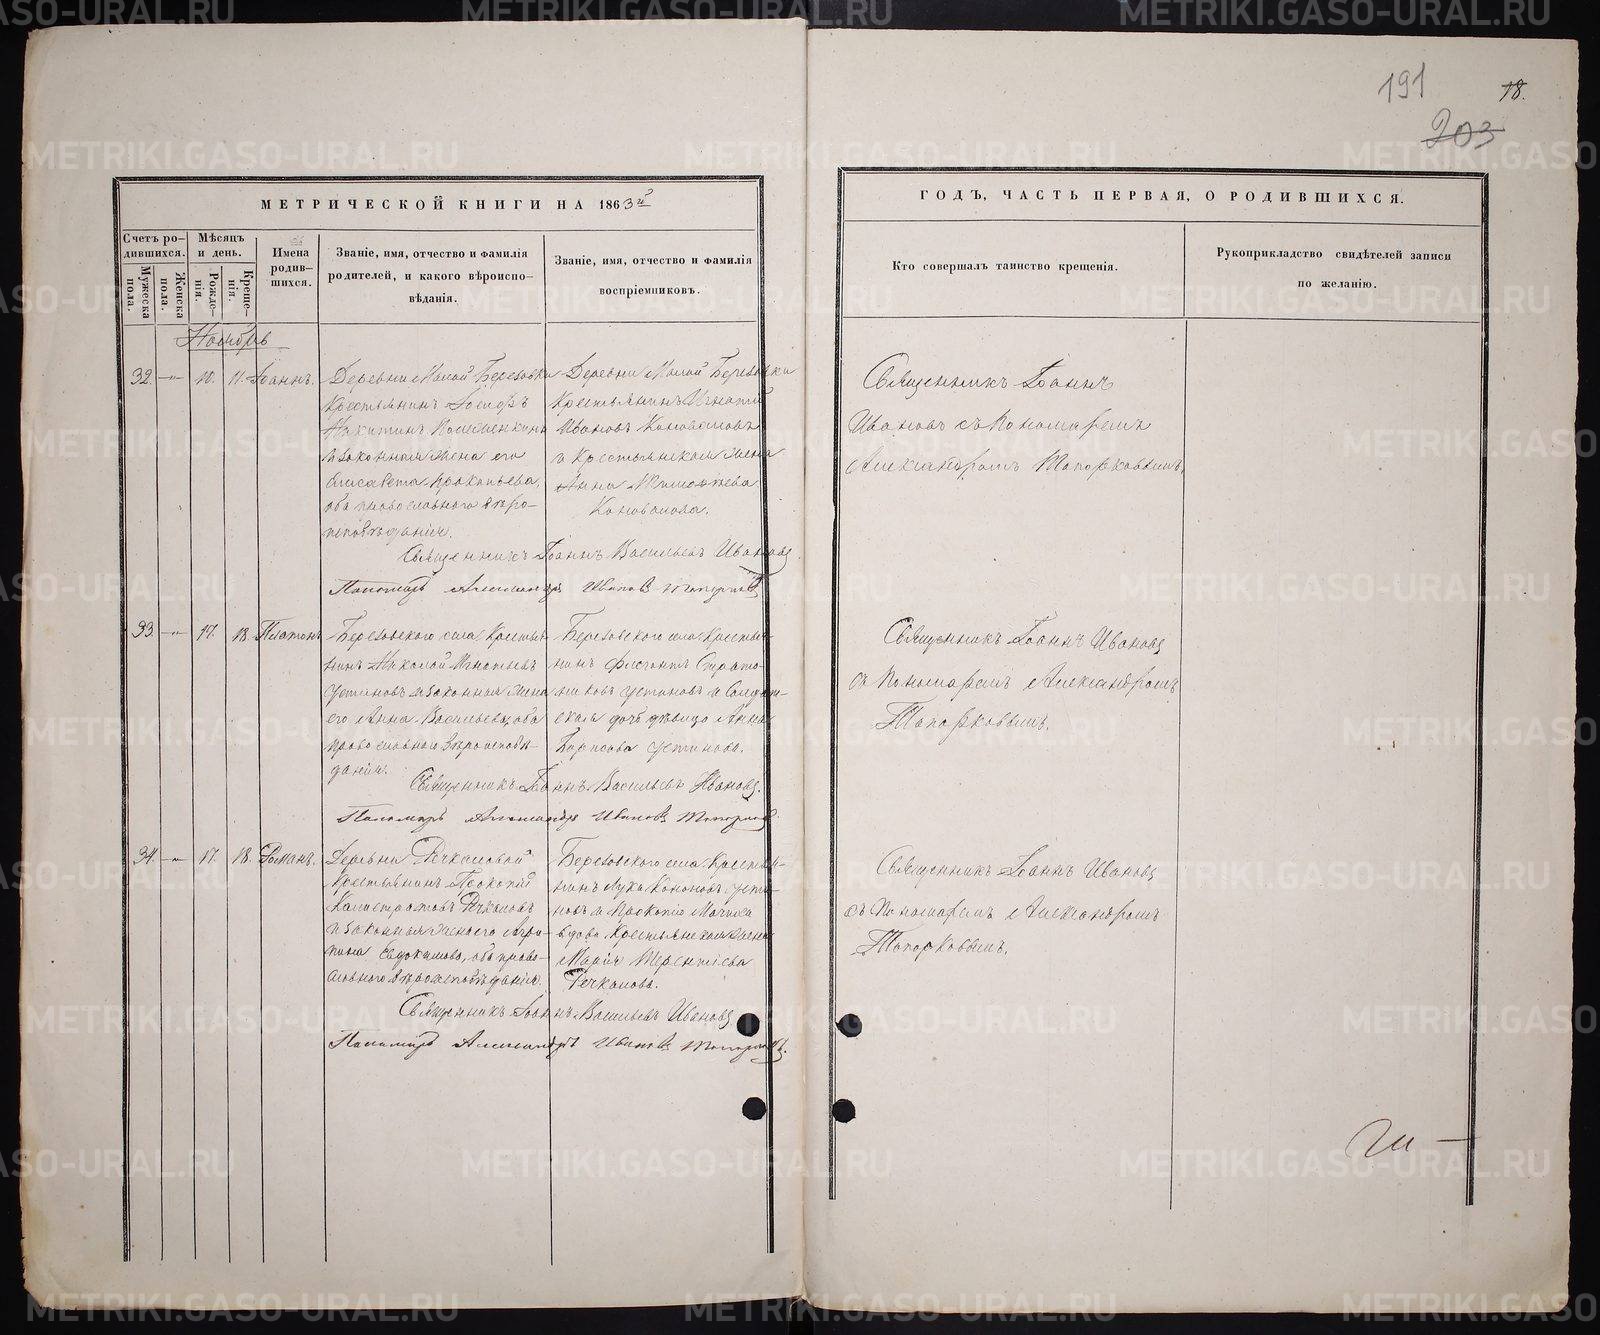 191
18.
203
МЕТРИЧЕСКОЙ КНИГИ НА 1863й
ГОДЪ, ЧАСТЬ ПЕРВАЯ, О РОДИВШИХСЯ.
Счетъ родившихся.
Мужеска пола.
Женска пола.
Мѣсяцъ и день.
Рожденія.
Крещенія.
Имена родившихся.
Званіе, имя, отчество и фамилія
родителей, и какого вѣроиспо-
вѣданія.
Званіе, имя, отчество и фамилія
воспріемниковъ.
Кто совершалъ таинство крещенія.
Рукоприкладство свидѣтелей записи
по желанію.
Ноябрь
32. —"— 10. 11. Іоаннъ.
Деревни Малой Березовки
Крестьянинъ Іосифъ
Никитинъ
и законная жена его
Елисавета Прокопьева,
оба православнаго вѣро-
исповѣданія.
Деревни Малой Березовки
Крестьянинъ Игнатій
Ивановъ Коноваловъ
и Крестьянская жена
Анна
Коновалова.
Священникъ Іоаннъ
Ивановъ съ Пономаремъ
Александромъ Топорковымъ.
Священникъ Іоаннъ Васильевъ Ивановъ.
Пономарь Александръ Ивановъ Топорковъ
33. —"— 17. 18. Платонъ
Березовскаго села Крестья-
нинъ Николай Игнатьевъ
Устиновъ и законная жена
его Анна Васильева, оба
православнаго вѣроисповѣ-
данія.
Березовскаго села Крестья-
нинъ Флегонтъ Страто-
никовъ Устиновъ и Солдат-
ская дочь дѣвица Анна
Борисова Устинова.
Священникъ Іоаннъ Ивановъ
съ Пономаремъ Александромъ
Топорковымъ.
Священникъ Іоаннъ Васильевъ Ивановъ.
Пономарь Александръ Ивановъ Топорковъ
34. —"— 17. 18. Романъ.
Деревни Речкаловой
Крестьянинъ Прокопій
Калистратовъ Речкаловъ
и законная жена его Агри-
пина Евдокимова, оба право-
славнаго вѣроисповѣданія.
Березовскаго села Крестья-
нинъ Лука Кононовъ Усти-
новъ и Прокопія Мачиха
вдова Крестьянская жена
Марія Терентіева
Речкалова.
Священникъ Іоаннъ Ивановъ
съ Пономаремъ Александромъ
Топорковымъ.
Священникъ Іоаннъ Васильевъ Ивановъ
Пономарь Александръ Ивановъ Топорковъ.
METRIKI.GASO-URAL.RU